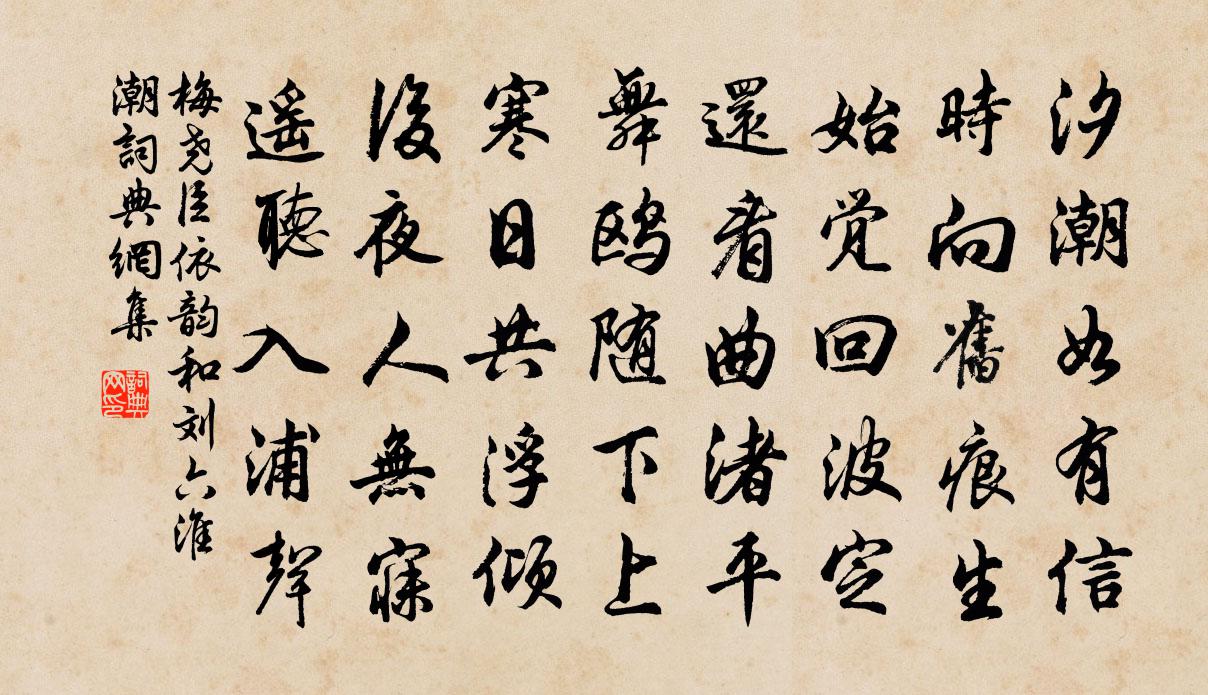 汐潮如有信
時向舊痕生
始觉回波定
還看曲渚平
舞鸥随下上
寒日共浮倾
後夜人無寐
遥聽入浦聲
梅尧臣依韵和刘六淮
潮詞典網集
詞典
网印